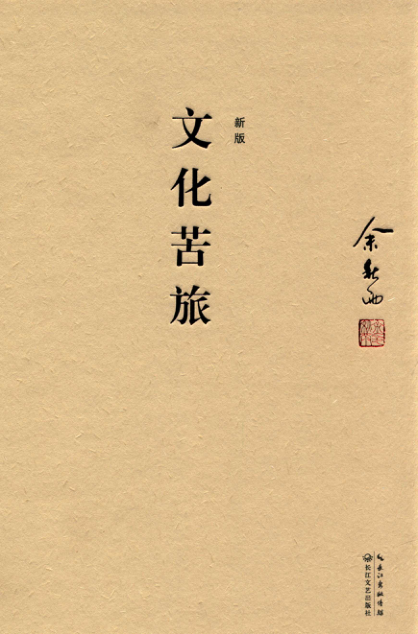 新版
文化苦旅
余秋雨
长江出版传媒
长江文艺出版社